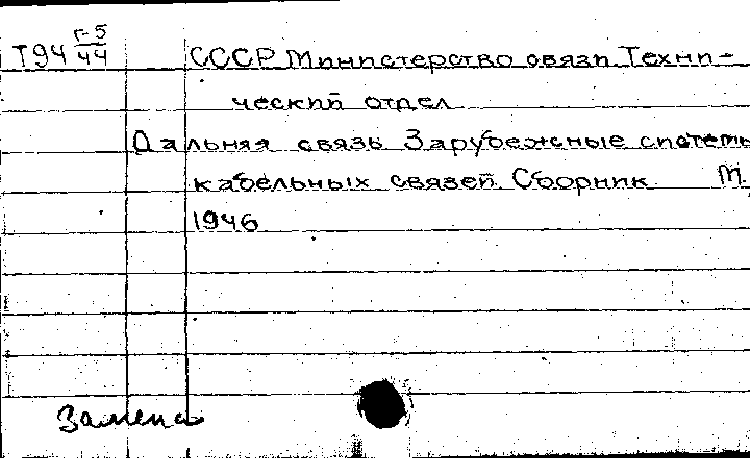 Т94 Г-5/44 СССР Министерство связи Техни-
ческий отдел
Дальняя связь Зарубежные системы
кабельных связей. Сборник М.
1946
Замена